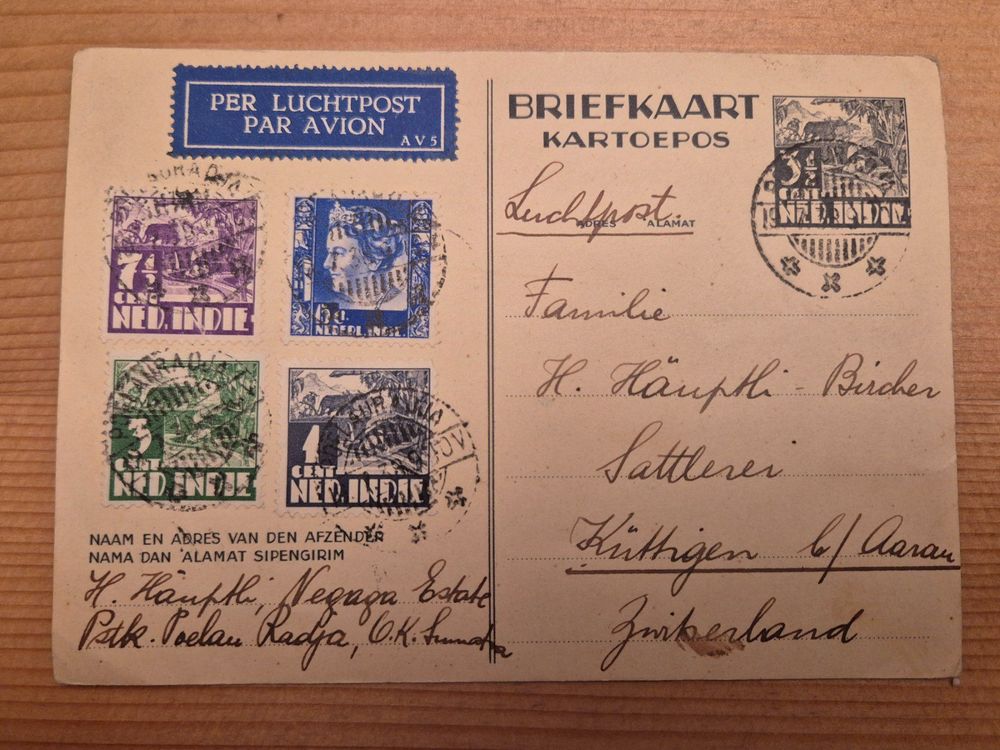 PER LUCHTPOST
PAR AVION
AV5
7½
CENT
NED. INDIE
NEDERL. INDIE
3
CENT
NED INDIE
1
CENT
NED. INDIE
NAAM EN ADRES VAN DEN AFZENDER
NAMA DAN ALAMAT SIPENGIRIM
H. Häuptli, Negaga Estate
Pstk. Poelau Radja, O.K. Sumatra
BRIEFKAART
KARTOEPOS
3½
CENT
Luchtpost.
ADRES ALAMAT
Familie
H. Häuptli - Bircher
Sattlerei
Küttigen b/ Aarau
Zwitserland